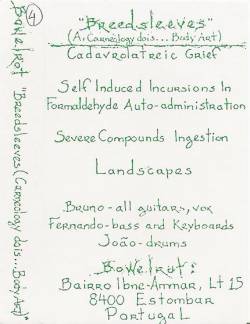 4
Bowelrot "Breedsleeves (Carneology dois... Body Art)"
"Breedsleeves"
(A: Carneology dois... Body Art)
Cadavrolatreic Grief
Self Induced Incursions In
Formaldehyde Auto-administration
Severe Compounds Ingestion
Landscapes
Bruno - all guitars, vox
Fernando - bass and Keyboards
João - drums
Bowelrot:
Bairro Ibne-Ammar, Lt 15
8400 Estombar
Portugal